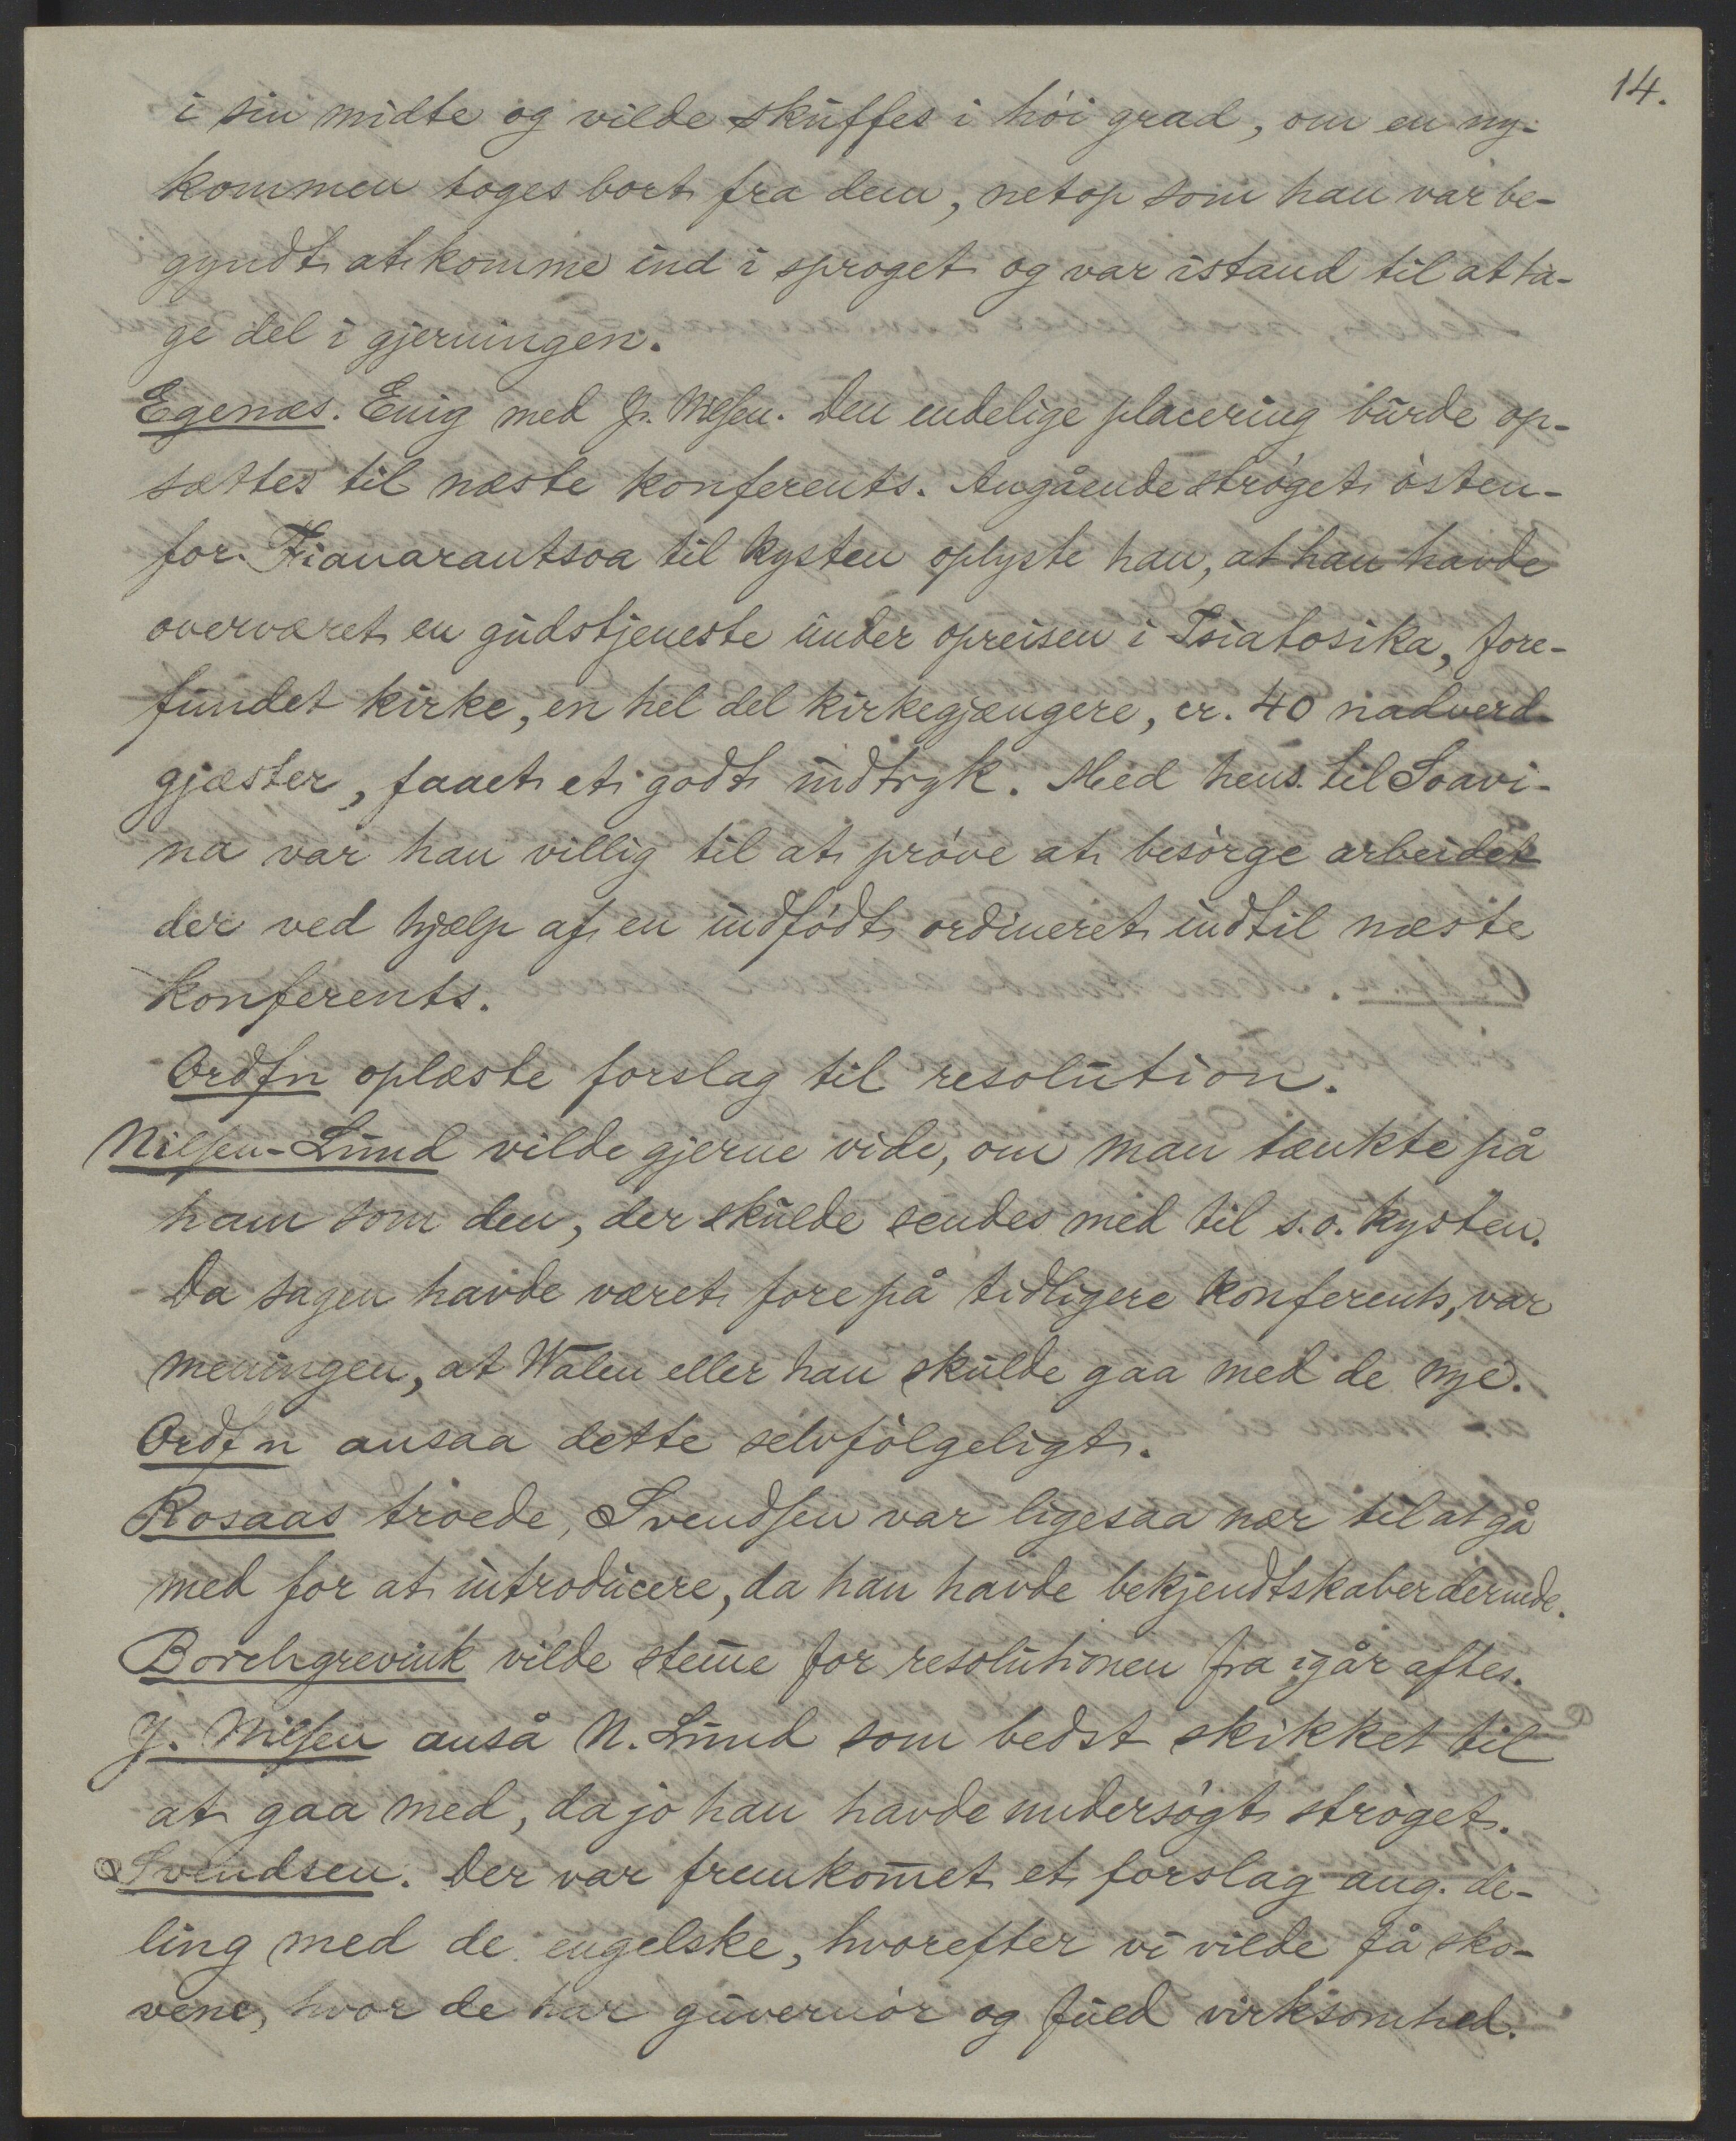 14.
i sin midte og vilde skuffes i høi grad, om en ny-
kommen toges bort fra dem, netop som han var be-
gyndt at komme ind i sproget og var istand til at ta-
ge del i gjerningen.
Egenæs. Enig med J. Nilsen. Den endelige placering burde op-
sættes til næste konferents. Angående strøget østen-
for Fianarantsoa til kysten oplyste han, at han havde
overværet en gudstjeneste under opreisen i Tsiatosika, fore-
fundet kirke, en hel del kirkegjængere, cr. 40 nadverd-
gjæster, faaet et godt indtryk. Med hens. til Soavi-
na var han villig til at prøve at besørge arbeidet
der ved hjælp af en indfødt ordineret indtil næste
konferents.
Ordfn oplæste forslag til resolution.
Nilsen-Lund vilde gjerne vide, om man tænkte på
ham som den, der skulde sendes med til s.o. kysten.
Da sagen havde været fore på tidligere konferents, var
meningen, at Walen eller han skulde gaa med de nye.
Ordfn ansaa dette selvfølgeligt.
Rosaas troede, Svendsen var ligesaa nær til at gå
med for at introducere, da han havde bekjendtskaber dernede.
Borchgrevink vilde stem̅e for resolutionen fra igår aftes.
J. Nilsen anså N. Lund som bedst skikket til
at gaa med, da jo han havde undersøgt strøget.
Svendsen. Der var fremkom̅et et forslag ang. de-
ling med de engelske, hvorefter vi vilde få sko-
vene, hvor de har guvernør og fuld virksomhed.